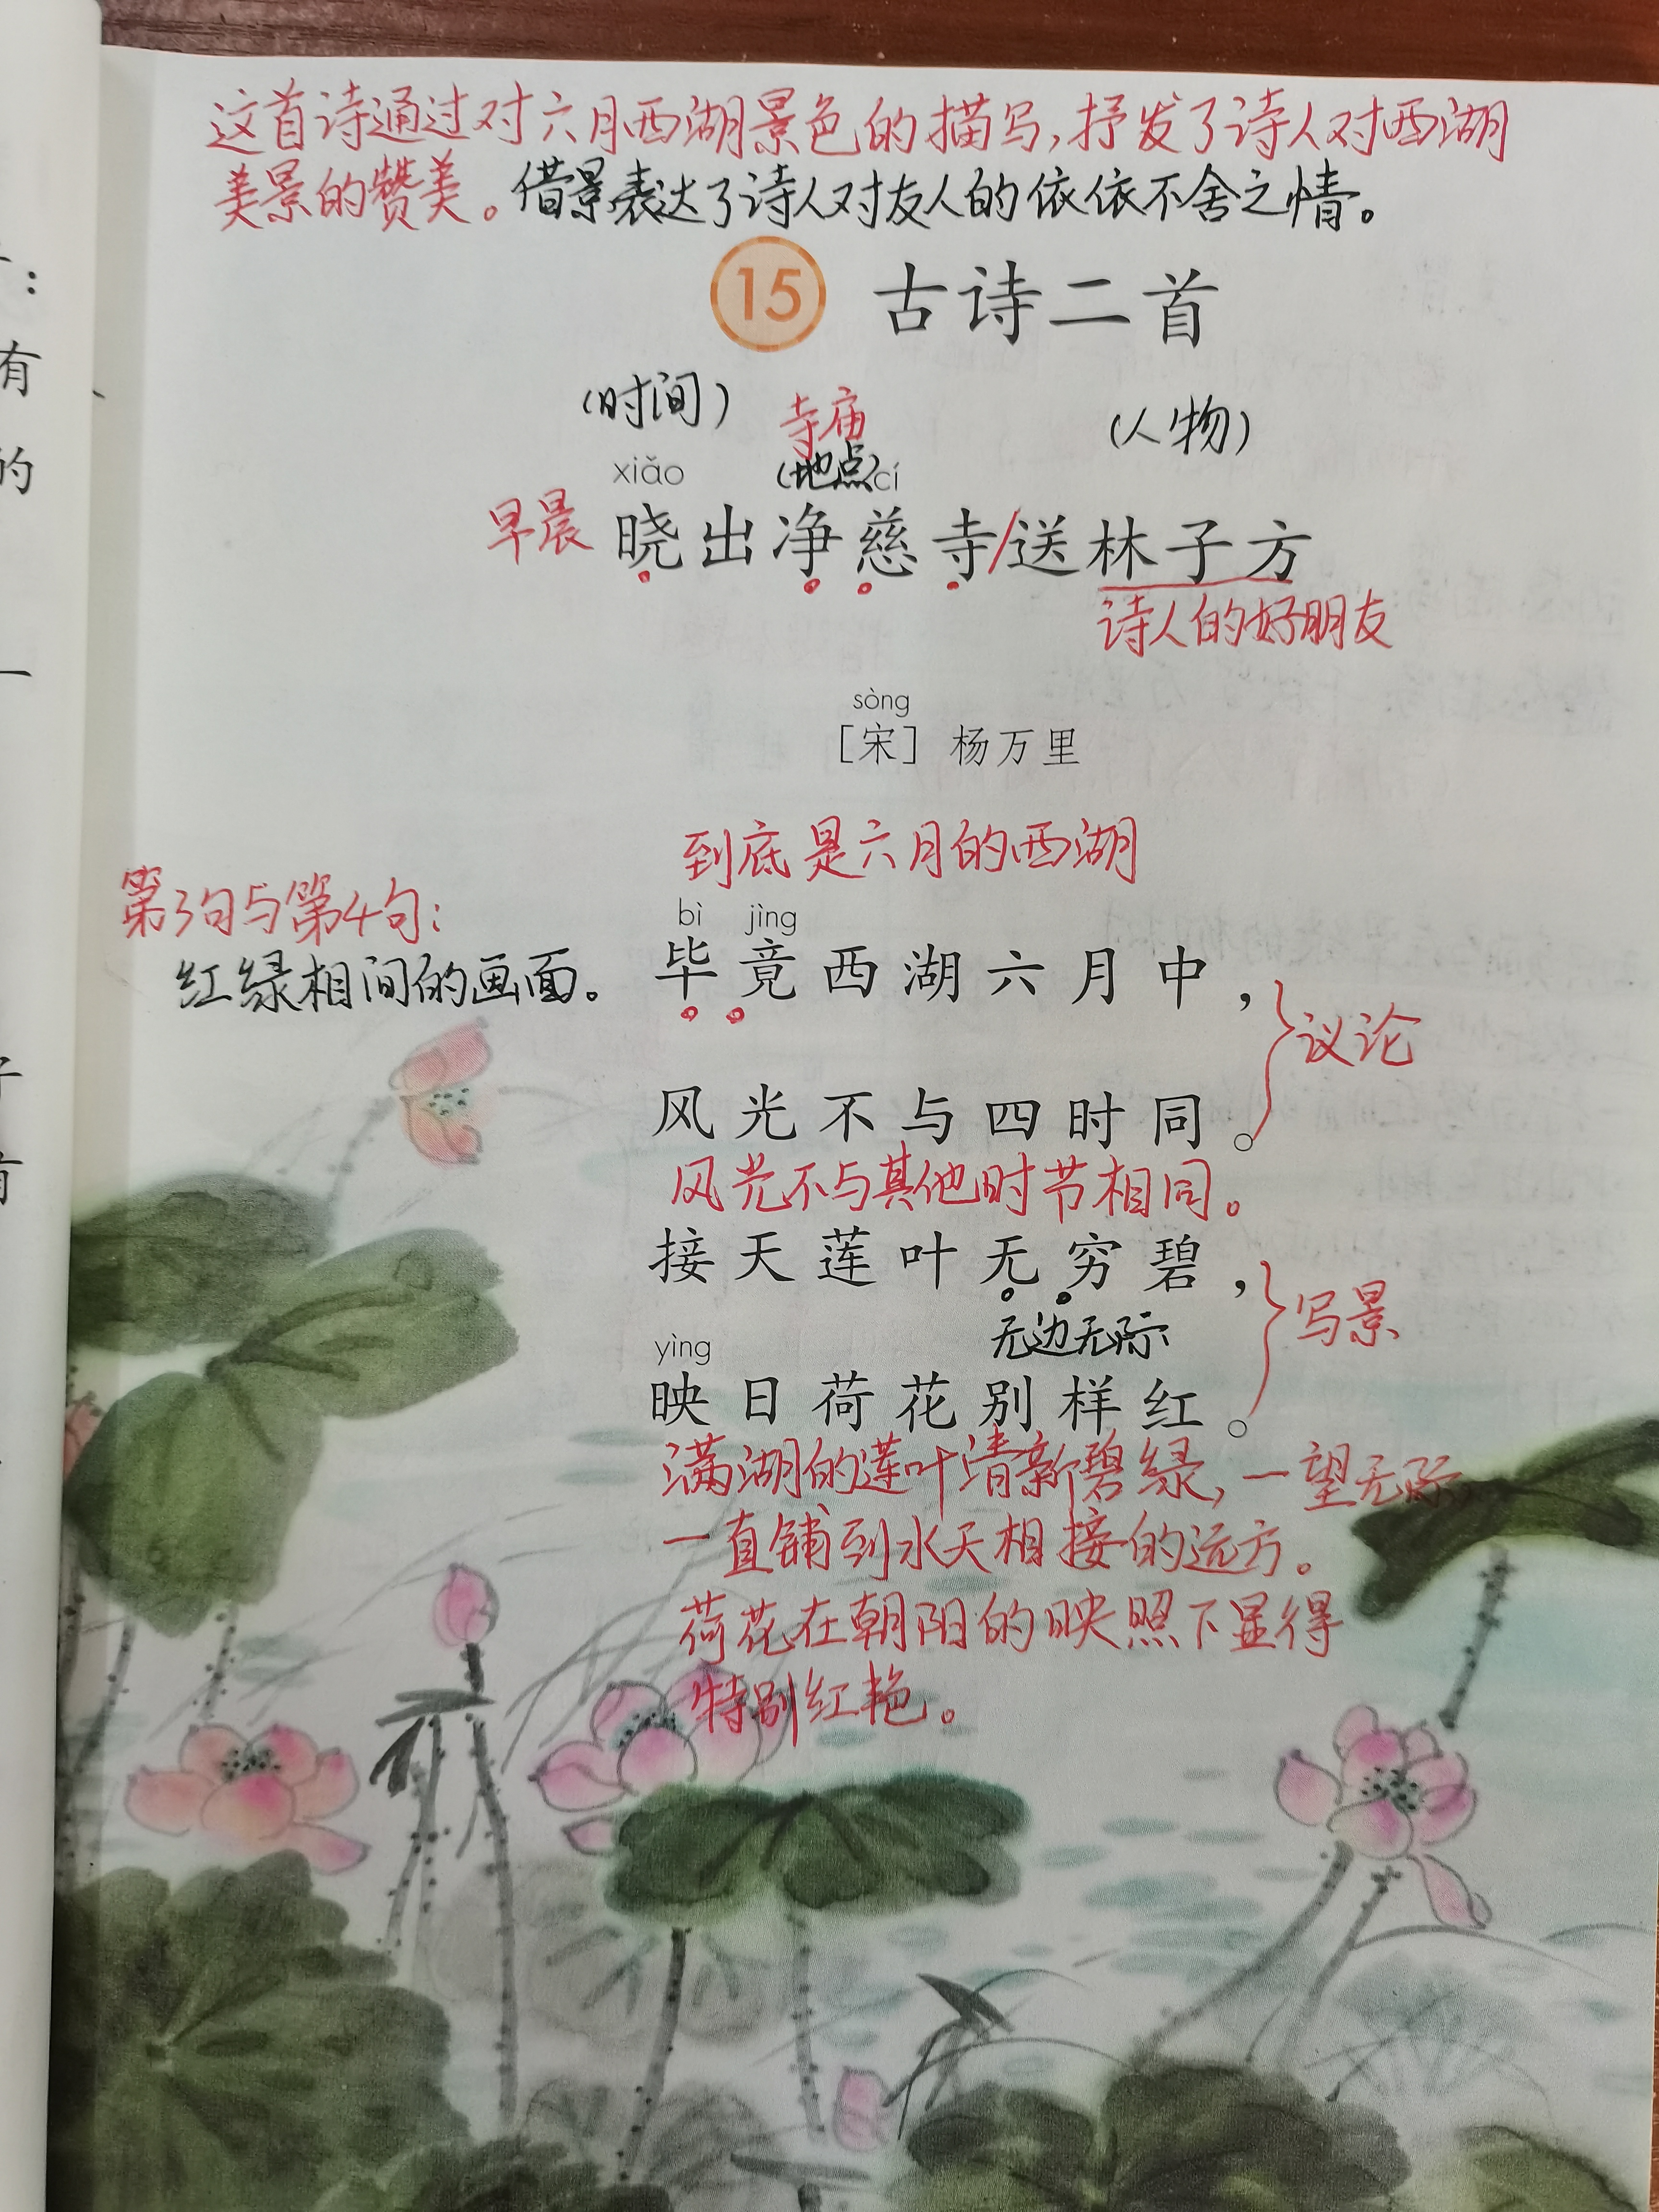 这首诗通过对六月西湖景色的描写,抒发了诗人对西湖
美景的赞美。借景表达了诗人对友人的依依不舍之情。
15 古诗二首
(时间) 寺庙 (人物)
xiǎo (地点)cí
早晨 晓出净慈寺/送林子方
诗人的好朋友
sòng
[宋] 杨万里
到底是六月的西湖
第3句与第4句:
bì jìng
红绿相间的画面。 毕竟西湖六月中,
议论
风光不与四时同。
风光不与其他时节相同。
接天莲叶无穷碧,
写景
yìng 无边无际
映日荷花别样红。
满湖的莲叶清新碧绿,一望无际,
一直铺到水天相接的远方。
荷花在朝阳的映照下显得
特别红艳。
有
的
一